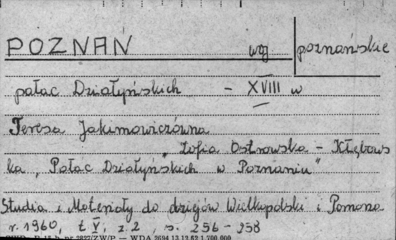 POZNAŃ woj poznańskie
pałac Działyńskich - XVIII w
Teresa Jakimowiczówna
Zofia Ostrowska - Kłębows
ka „Pałac Działyńskich w Poznaniu"
Studia i Materiały do dziejów Wielkopolski i Pomorza
r. 1960, t V, z. 2, s. 256 - 258